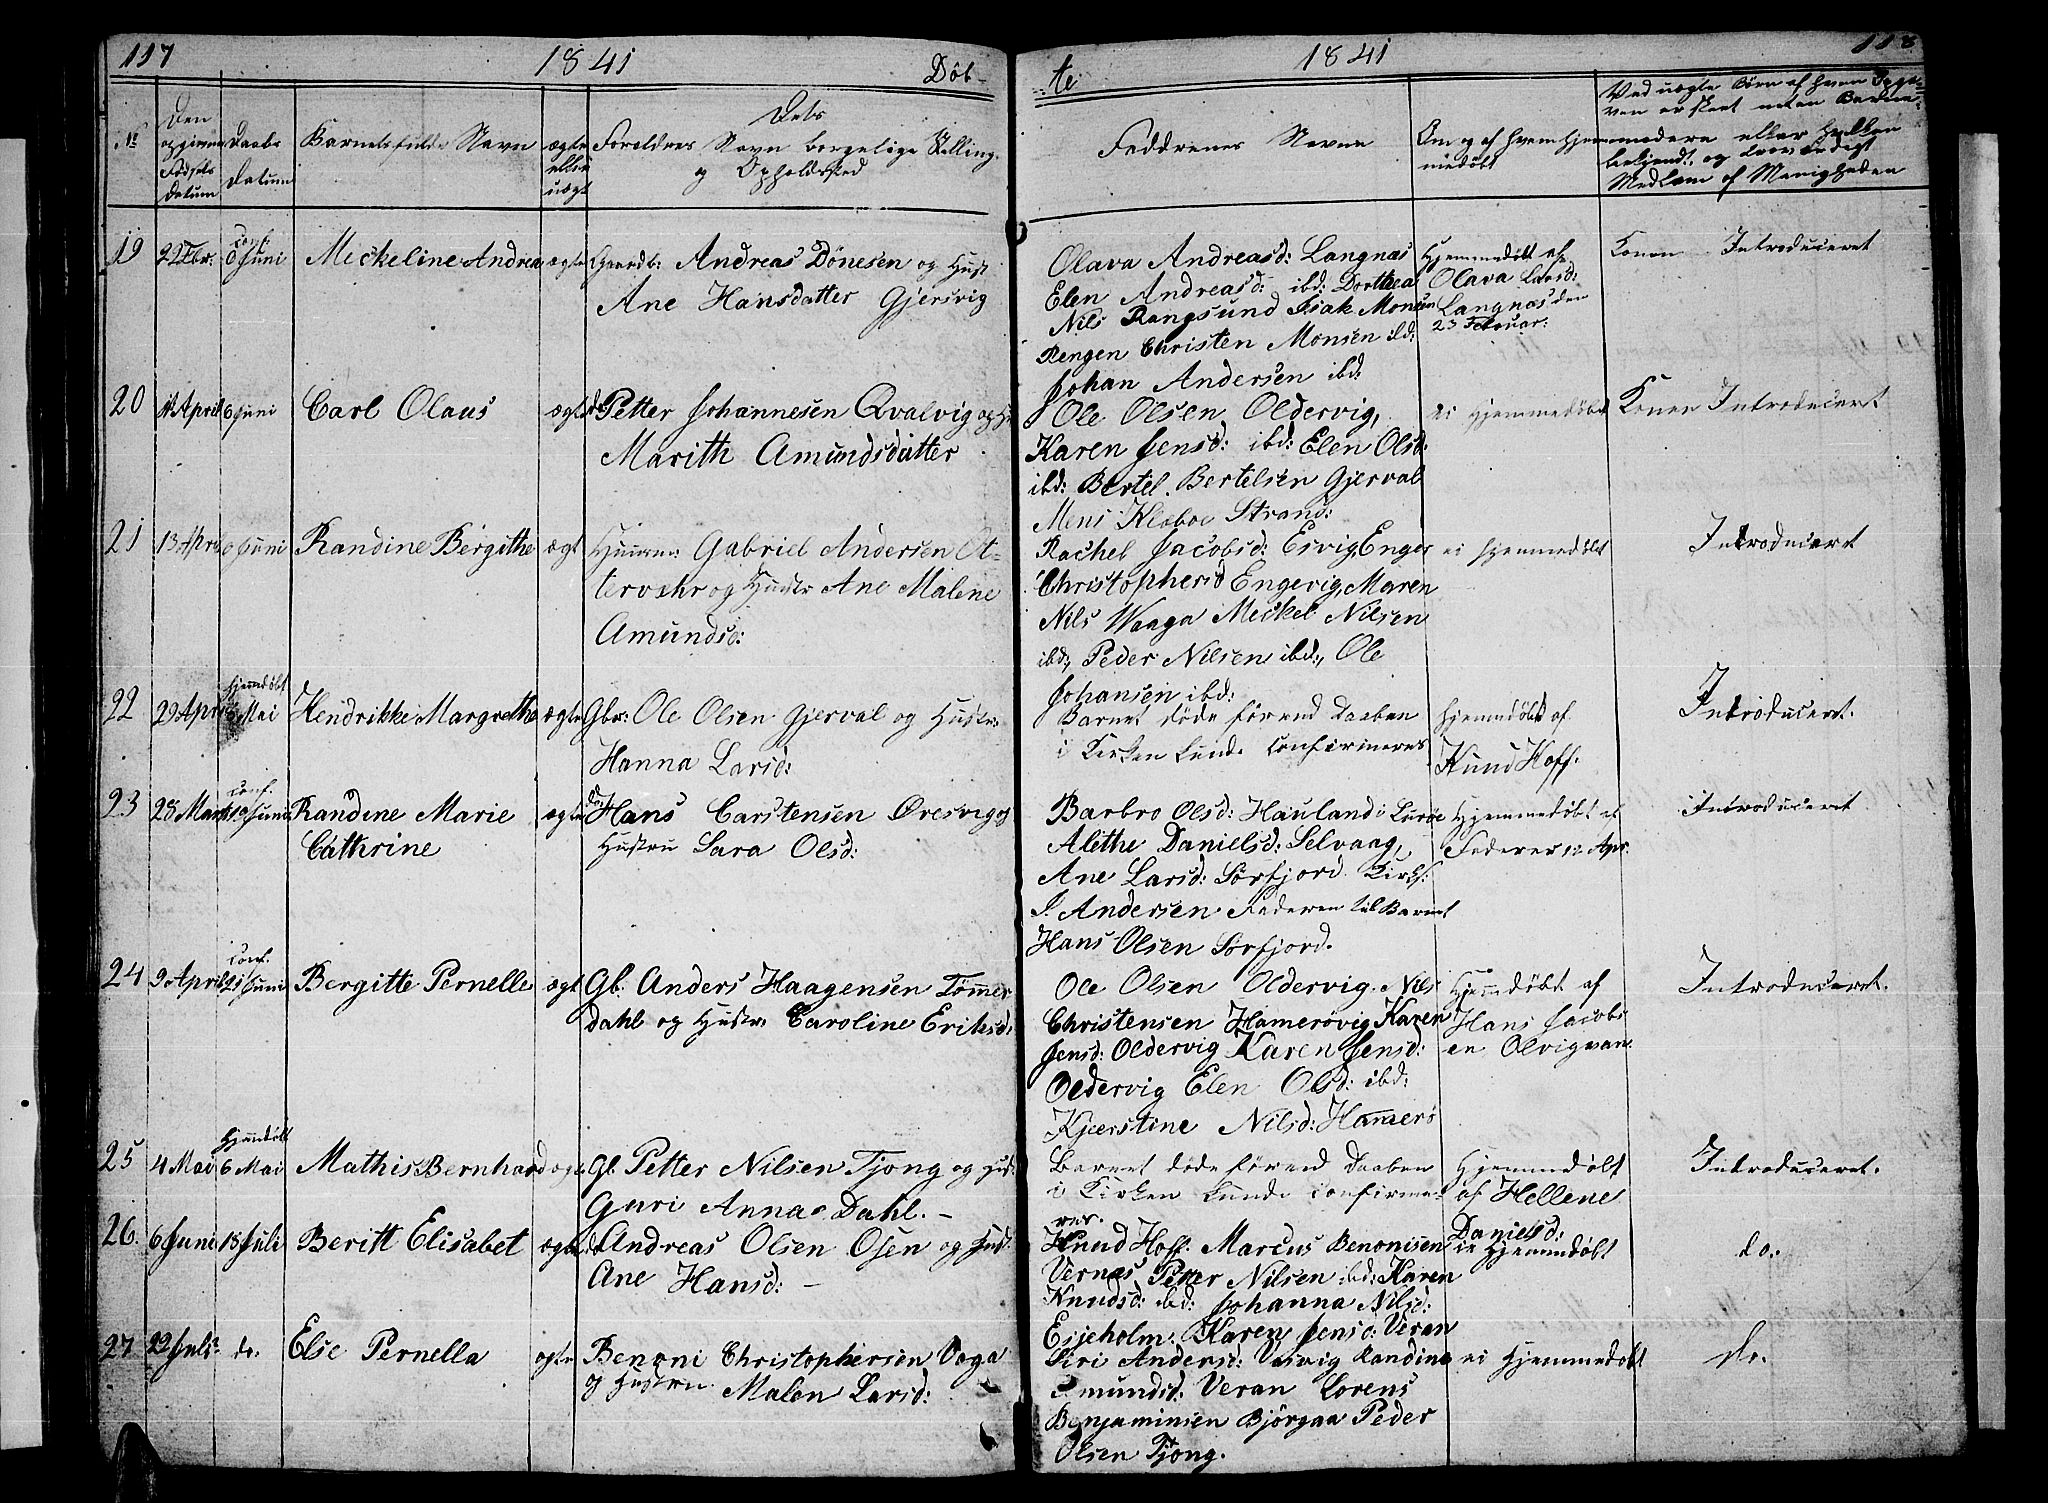 117
1841
Døb-
te
1841
118
№
Den opgivne Fødsels Datum
Daabs Datum
Barnets fulde Navn
ægte eller uægt
Forældres Navn borgelige Stilling og Opholdsted
Faddrenes Navne
Om og af hvem hjemmedøbt
19
22 Febr:
conf. 6 Juni
Meckeline Andrea
ægte
Gaardb: Andreas Dönesen og Hust
Ane Hansdatter Gjersvig
Olava Andreasd: Langnæs
Elen Andreasd: ibd: Dorthea
Nils Rangsund Isak Monsen
Rengen Christen Monsen ibd:
Johan Andersen ibd:
Hjemmedøbt af
Olava Larsd:
Langnæs den
23 Februar:
Konen Introduceret
20
April
6 Juni
Carl Olaus
ægte
do Petter Johannesen Qvalvig og H:
Marith Amundsdatter
Ole Olsen Oldervig,
Karen Jensd: ibd: Elen Olsd:
ibd: Bertel Bertelsen Gjerval
Mens Kleboe Strand:
ei Hjemmedøbt
Konen Introduceret
21
13 Apr
6 Juni
Randine Bergithe
ægt
Huusm: Gabriel Andersen Ot-
tervær og Hustr Ane Malene
Amundsd:
Rachel Jacobsd: Esvig, Enger
Christophersd Engevig, Maren
Nils Waaga Meckel Nilsen
ibd:, Peder Nilsen ibd:, Ole
Johansen ibd:
ei Hjemmedøbt
Introduceret
22
29 Apr
Hjemdøbt
Mai
Hendrikke Margrethe
ægte
Gbr: Ole Olsen Gjerval og Hustr:
Hanna Larsd:
Barnet døde førend Daaben
i Kirken kunde confirmeres
Hjemmedøbt af
Knud Hoff.
Introduceret.
23
28 Mart
conf. Juni
Randine Marie
Cathrine
ægte
do. Hans Carstensen Øresvig og
Hustru Sara Olsd:
Barbro Olsd: Hauland i Lurøe
Alethe Danielsd: Selvaag,
Ane Larsd: Sørfjord. Kirks:
P. Andersen Faderen til Barnet
Hans Olsen Sørfjord.
Hjemmedøbt af
Faderen 12 Apr.
Introduceret
24
9 April
conf. 21 Juni
Bergitte Pernelle
ægt
Gb. Anders Haagensen Tømmer
dahl og Hustr: Caroline Eriksd:
Ole Olsen Oldervig. Nils
Christensen Hamerövig Karen
Jensd: Oldervig Karen Jensd:
Oldervig Elen Olsd: ibd:
Kjerstine Nilsd: Hamerö
Hjemdøbt af
Hans Jacobs
en Olvigvan.
Introduceret.
25
4 Mai
Hjemdøbt
6 Mai
Mathis Bernhard
ægte
Gb. Petter Nilsen Tjong og Hust
Guri Anna Dahl. –
Barnet døde førend Daaben
i Kirken kunde confirme-
res.
Hjemmdøbt
af Hellene
Danielsd:
Introduceret.
26.
6 Juni
18 Juli
Beritt Elisabet
ægte
do Andreas Olsen Osen og Hust.
Ane Hansd: –
Knud Hoff. Marcus Benonisen
Vernæs Petter Nilsen ibd: Karen
Knudsd: ibd: Johanna Nilsd:
Esjeholm: Karen Jensd: Veran
ei Hjemmdøbt
do.
27
22 Juli
do.
Else Pernella
ægte
Benoni Christophersen Vaga
og Hustru Malen Larsd:
Siri Andersd: Vasvig Randine
Amundsd: Veran Lorens
Benjaminsen Bjørgan Peder
Olsen Tjong.
ei Hjemmedøbt
do.